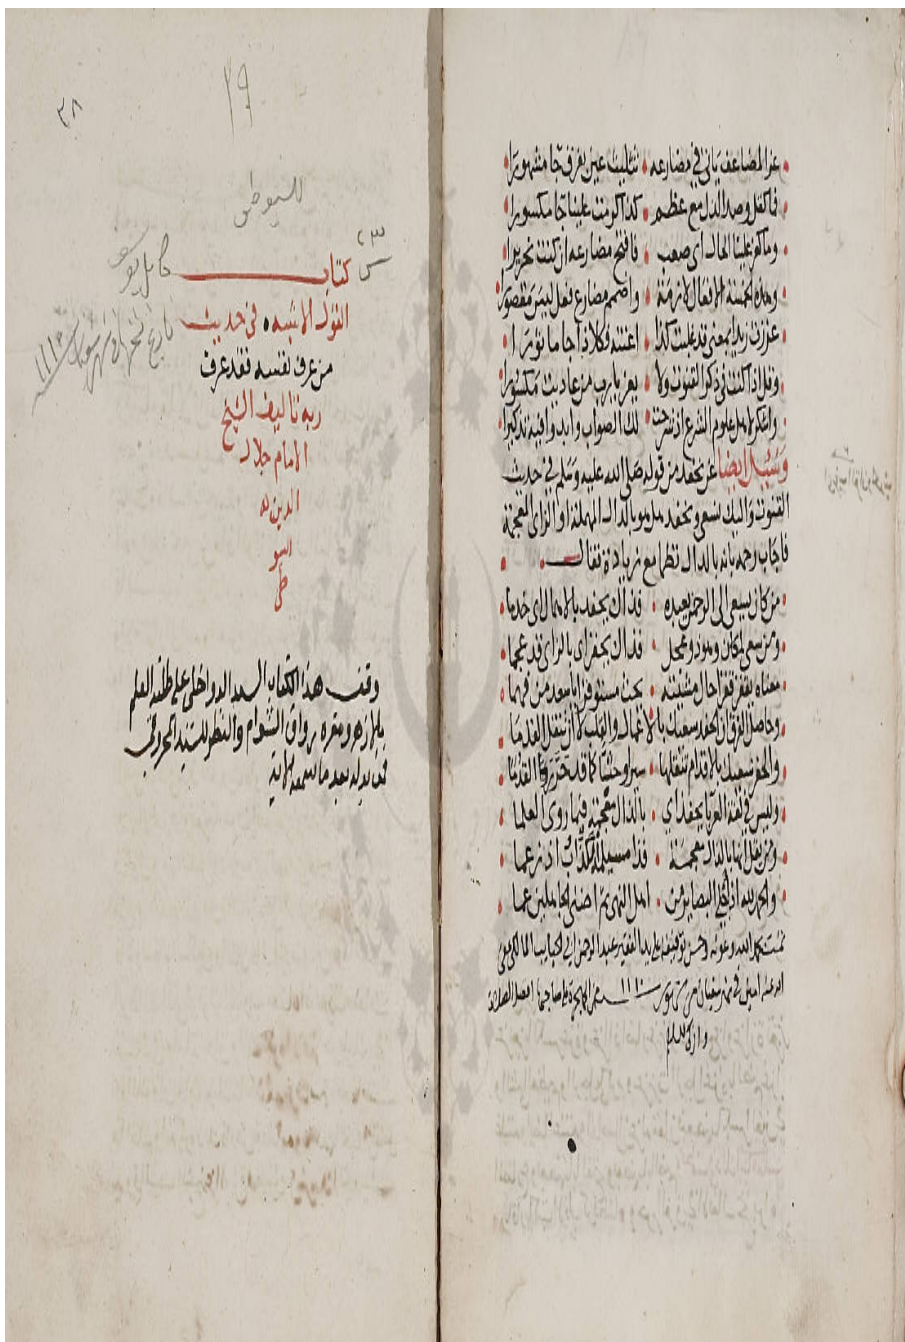 عز المضاعف يأتي في مضارعه تثليث عين بفرق جا مشهورا
فما كقل وضد الذل مع عظم كذا كرمت علينا جا مكسورا
وما كعز علينا الحال اى صعب فافتح مضارعه ان كنت نحريرا
وهذه الخمسة الافعال لازمة واضمم مضارع فعل ليس مقصورا
عززت زيدا بمعنى قد غلبت كذا اعنته فكلا ذا جا ماثورا
وقل اذا كنت في ذكر القنوت ولا يعز يا رب من عاديت مكسورا
واشكر لاهل علوم الشرع اذ شرحت لك الصواب وابدوا فيه تذكيرا
وسئل ايضا عن نحفد من قوله صلى الله عليه وسلم في حديث
القنوت واليك نسعى ونحفد هل هو بالدال المهملة او الزاى المعجمة
فاجاب رحمه بانه بالدال نظما مع زيادة فقال
من كان يسعى الى الرحمن يعبده فذاك يحفد بالاهمال اى خدما
ومن سعى لمكان وهو ذو عجل فذاك يحفز اى بالزاى قد عجما
معناه يقفز قفزا حال مشيته بحث مستوفزا يا سعد من فهما
وحاصل الفرق ان الحفد سعيك بالاعمال والقلب لا ان تنقل القدما
والحفز سعيك بالاقدام تنقلها سيرا حثيثا كما قد حرر القدما
وليس في لغة العربا يحفذ اى بالذال معجمة فيما روى العلما
ومن يقل انها بالذال معجمة فذا مسيلمة الكذاب اذ زعما
والحمد لله اذ ابقى البصاير من اهل النهى ثم اضنى الجاهلين عما
تمت بحمد الله وعونه وحسن توفيقه على يد الفقير عبد الرحمن المالكي عفى
الله عنه امين في شهر شعبان من شهور سنة ١١١٠ من الهجرة على صاحبها افضل الصلاة
وازكى السلام
٢٩
٣٨
للسيوطي
٢٣
كتاب
القول الاشبه في حديث
من عرف نفسه فقد عرف
ربه تاليف الشيخ
الامام جلال
الدين
السيو
طي
وقف هذا الكتاب السيد الدواخلي على طلبة العلم
بالازهر ومقره رواق الشوام والنظر للسيد المحروقي
فمن بدله بعد ما سمعه الاية